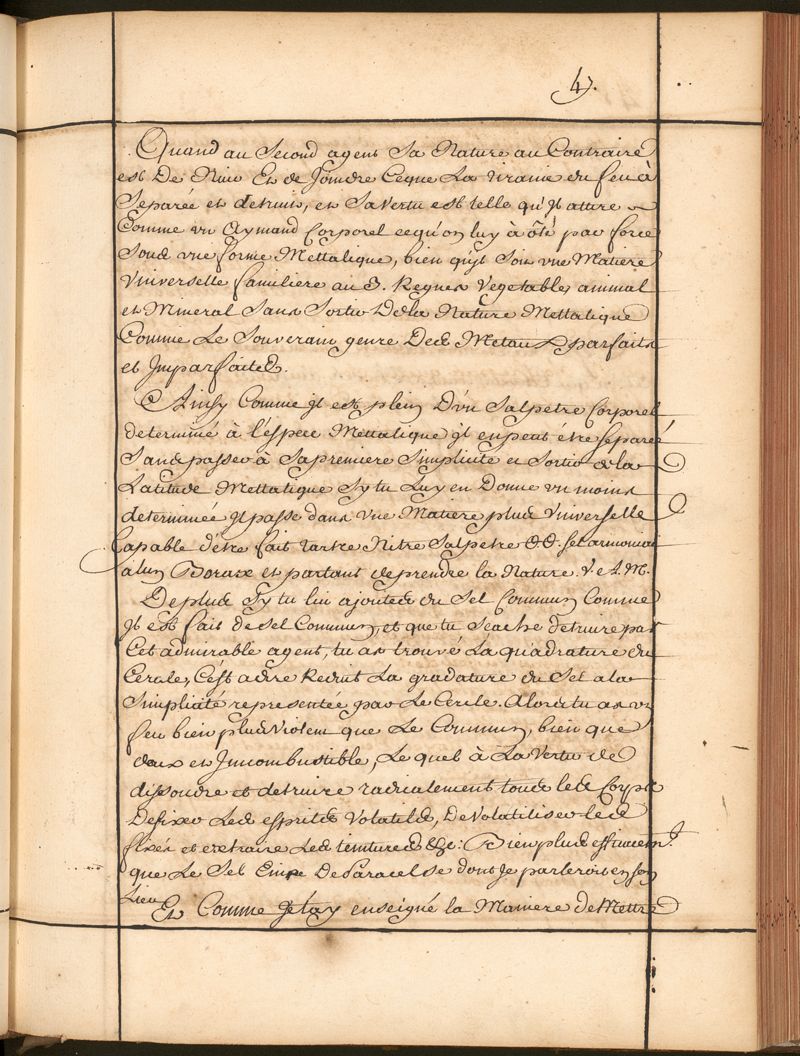 4.
Quand au Second agent Sa Nature au Contraire
est De Unir Et de Joindre Ceque La tiranie du feu à
Separée et detruit, et Sa vertu est telle qu'Jl attire
Comme un Aymand Corporel cequ'on luy à ôté par force
Sous une forme Mettalique, bien qu'jl Soit une Matiere
Vniverselle familiere au 3. Regnes Vegetables animal
et Mineral Sans Sortir Dela Nature Mettalique
Comme Le Souverain genre Des Metaux parfaits
et Jmparfaites.
Ainsy Comme jl est plein D'un Salpetre Corporel
determiné à l'espece Mettalique jl enpeut être Separée
Sans passer à Sapremiere Simplicité et Sortir de la
Latitude Mettalique Sy tu Luy en Donne un moins
determinée jl passe dans une Matiere plus Vniverselle
Capable d'être fait tartre Nitre Salpetre sel armoniac
alun Borax et partant deprendre la Nature. V. e A. M.
Deplus Sy tu lui ajoutes du Sel Commun Comme
jl est fait de Sel Commun, et que tu Scache detruire par
Cet admirable agent, tu as trouvé La quadrature du
Cercle, C'est adire Reduit La gradature du Sel a la
Simplicité representée par Le Cercle. Alors tu as un
feu bien plus Violent que Le Commun, bien que
doux et Jncombustible, Le quel à La Vertu de
dissoudre et detruire radicalement tous les Corps
Defixer Les esprits Volatils, De Volatiliser les
fixés et extraire Les teintures &c: Bien plus efficacem.t
que Le Sel De Paracelse dont Je parlerois en Son
Lieu
Et Comme Je tay enseigné la Maniere de Mettre